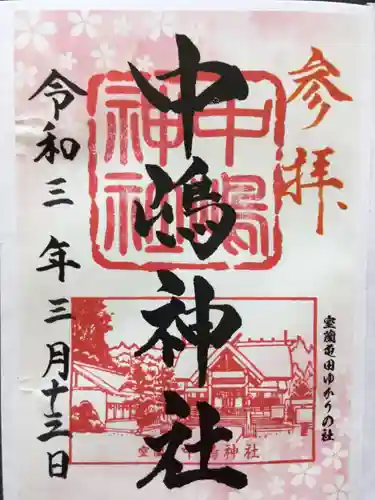 参拝
室蘭亀田ゆかりの社
中嶋神社
中嶋神社
室蘭 中嶋神社
令和三年三月十三日